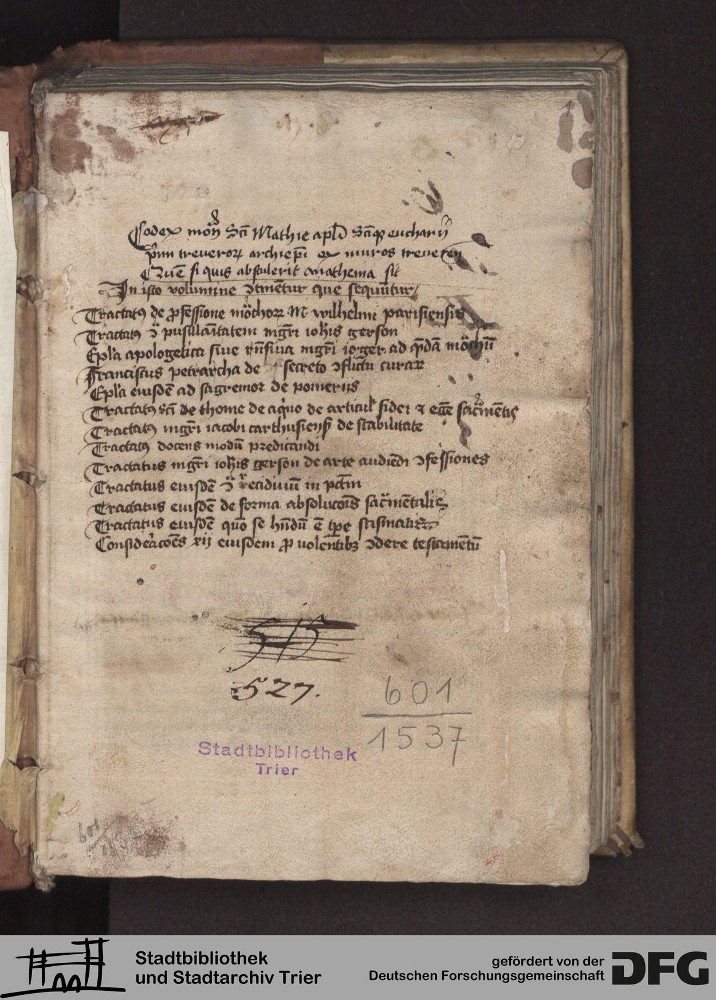 Codex moñ Scī Mathie apłi Scīqȝ eucharij
pͥmi treueroꝝ archiepī ex muros treueren̄
Quē si quis abstulerit anathema sit
In isto volumine ↄtinētur que sequūtur
Tractatꝰ de ꝓfessione mōchoꝝ M wilhelmi parisiensis
Tractatꝰ ↄ̄ pusillāītatem mgr̄i ioh̄is gerson
Ep̄la apologetica siue rn̄siua mgr̄i io ger. ad quēdā mōchū
Franciscus petrarcha de secreto ↄflictu curaꝝ
Ep̄la eiusdē ad sagremor de pomerijs
Tractatꝰ scī de thome de aqͥno de articul̄ fidei ⁊ ecc̄e sacͣmētis
Tractatꝰ mgr̄i iacobi carthusiens̄ de stabilitate
Tractatꝰ docens modū predicandi
Tractatus mgr̄i ioh̄is gerson de arte audiēdi ↄfessiones
Tractatus eiusdē ↄ̄ recidiuū in pctm̄
Tractatus eiusdē de forma absolucōis sacͣmētalis
Tractatus eiusdē quō se hn̄dū ē tp̄e scismatis
Consideracōes xij eiusdem ꝓ volentibȝ ↄdere testamētū
515
527.
601
1537
Stadtbibliothek
Trier
601
Stadtbibliothek
und Stadtarchiv Trier
gefördert von der
Deutschen Forschungsgemeinschaft
DFG